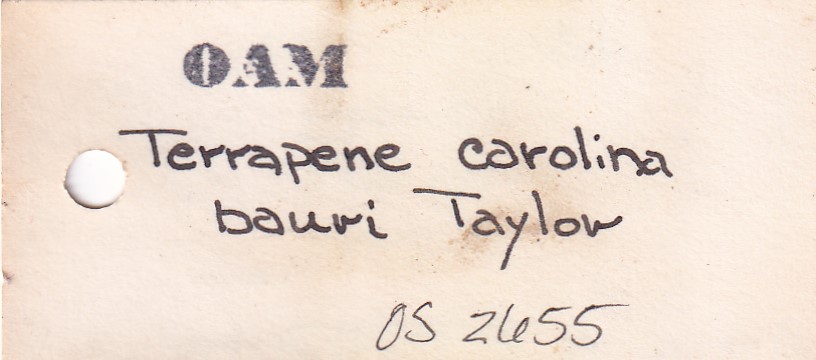 OAM
Terrapene carolina
bauri Taylor
OS 2655